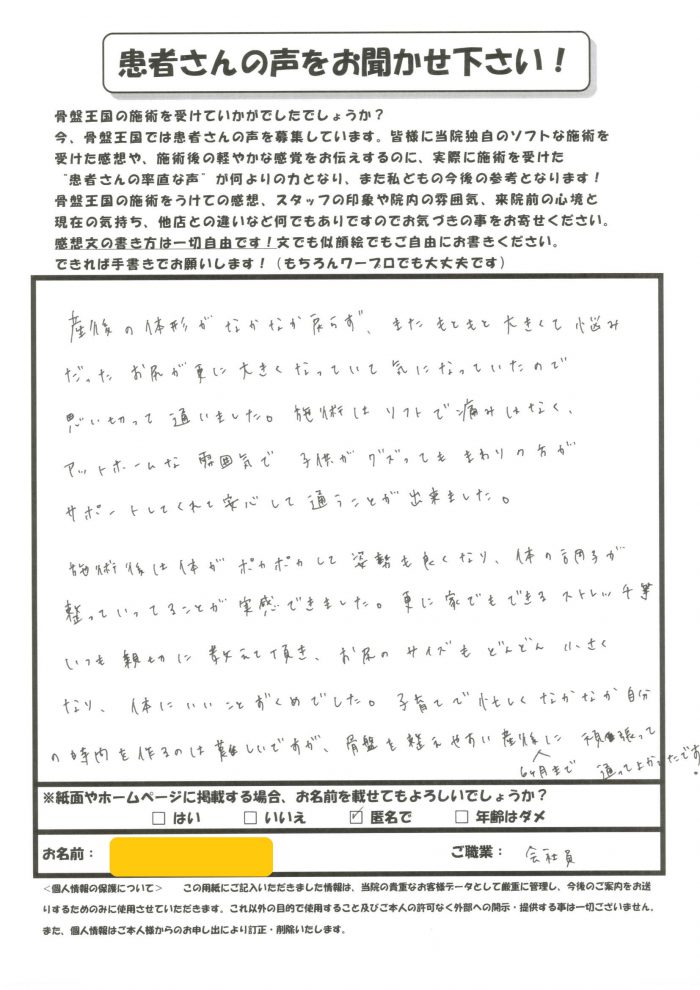 患者さんの声をお聞かせ下さい！
骨盤王国の施術を受けていかがでしたでしょうか？
今、骨盤王国では患者さんの声を募集しています。皆様に当院独自のソフトな施術を
受けた感想や、施術後の軽やかな感覚をお伝えするのに、実際に施術を受けた
"患者さんの率直な声"が何よりの力となり、また私どもの今後の参考となります！
骨盤王国の施術をうけての感想、スタッフの印象や院内の雰囲気、来院前の心境と
現在の気持ち、他店との違いなど何でもありですのでお気づきの事をお寄せください。
感想文の書き方は一切自由です！文でも似顔絵でもご自由にお書きください。
できれば手書きでお願いします！（もちろんワープロでも大丈夫です）
産後の体形がなかなか戻らず、またもともと大きくて悩み
だったお尻が更に大きくなっていて気になっていたので
思い切って通いました。施術はソフトで痛みはなく、
アットホームな雰囲気で子供がグズってもまわりの方が
サポートしてくれて安心して通うことが出来ました。
施術後は体がポカポカして姿勢も良くなり、体の調子が
整っていってることが実感できました。更に家でもできるストレッチ等
いつも親切に教えて頂き、お尻のサイズもどんどん小さく
なり、体にいいことずくめでした。子育てで忙しくなかなか自分
の時間を作るのは難しいですが、骨盤を整えやすい産後に頑張って
6ヶ月まで 通ってよかったです！
※紙面やホームページに掲載する場合、お名前を載せてもよろしいでしょうか？
□ はい □ いいえ ☑ 匿名で □ 年齢はダメ
お名前： ご職業： 会社員
<個人情報の保護について> この用紙にご記入いただきました情報は、当院の貴重なお客様データとして厳重に管理し、今後のご案内をお送
りするためのみに使用させていただきます。これ以外の目的で使用すること及びご本人の許可なく外部への開示・提供する事は一切ございません。
また、個人情報はご本人様からのお申し出により訂正・削除いたします。